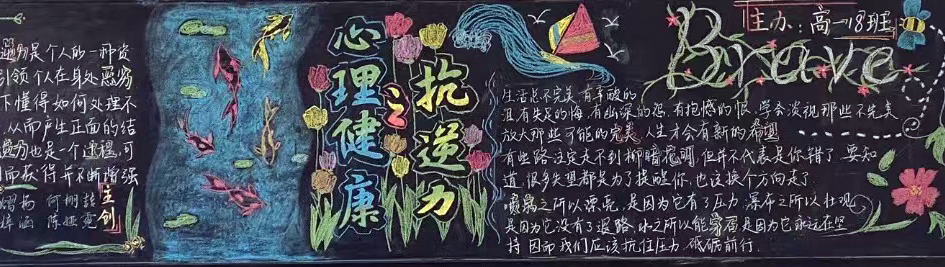 逆力是个人的一种资
引领个人在身处恶劣
下懂得如何处理不
从而产生正面的结
逆力也是一个过程,可
而获得并不断增强
主创
陈娅霓
心理健康
之
抗逆力
主办:高一18班
Brave
生活总不完美,有辛酸的
泪,有失足的悔,有幽深的怨,有抱憾的恨,学会淡视那些不完美
放大那些可能的完美,人生才会有新的希望
有些路注定走不到柳暗花明,但并不代表是你错了,要知
道,很多失望都是为了提醒你,也该换个方向走了.
喷泉之所以漂亮,是因为它有了压力,瀑布之所以壮观
是因为它没有了退路,水之所以能穿石是因为它永远在坚
持,因而我们应该抗住压力,砥砺前行.